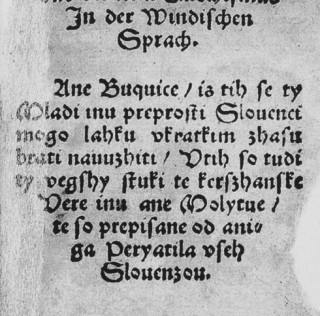 In der Windischen
Sprach.
Ane Buquice / is tih se ty
Mladi inu preprosti Slouenci
mogo lahku vkratkim zhasu
brati nauuzhiti / Vtih so tudi
ty vegshy stuki te kerszhanske
Vere inu ane Molytue /
te so prepisane od ani-
ga Peryatila vseh
Slouenzou.